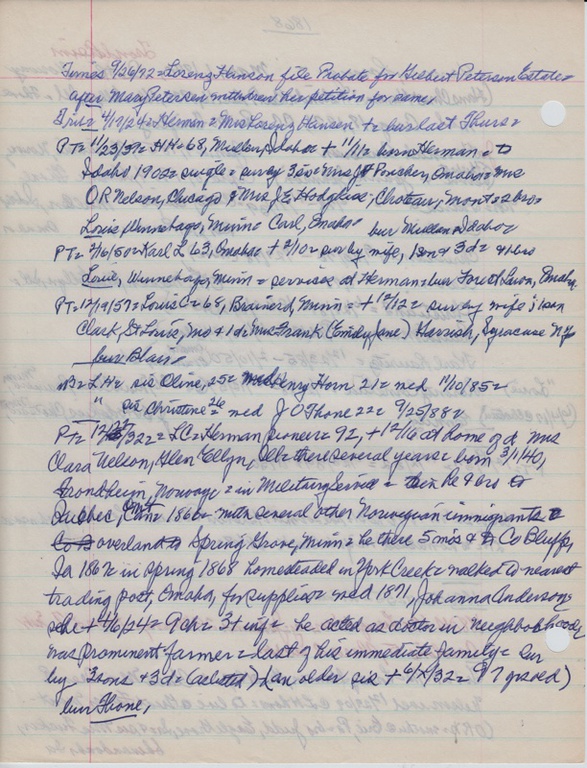 Times 9/26/72 = Lorenz Hanson file Probate for Gilbert Peterson Estate =
after Mary Petersen withdrew her petition for same,
4/19/24 = Herman = Mrs Lorenz Hansen + = bur last Thurs =
PT = 11/23/39 = HH = 68, Mullen, Idaho + 11/11 = born Herman =
Idaho 1902 = single = surv by 3 sis = Mrs Omaha = Mrs
OR Nelson, Chicago & Mrs J.E. Hodgkiss, Choteau, Mont = 2 bro =
Louis, Winnebago, Minn = Carl, Omaha bur Mullen Idaho =
PT = 2/16/50 = Karl L 63, Omaha + 2/10 = sur by wife, 1 son & 3 d = & 1 bro
Louie, Winnebago, Minn = services at Herman = bur Forest Lawn, Omaha,
PT = 12/19/57 = Louis C = 68, Brainerd, Minn = + 12/12 = sur by wife; 1 son
Clark, St Louis, Mo & 1 d = Mrs Frank (Emily Jane) Harrish, Syracuse NY =
bur Blair =
= L H = sis Oline, 25 = Henry Horn 21 = med 11/10/85 =
" sis Christine 26 = med J O Thone 22 = 9/25/88 =
PT = 12/ /32 = LC = Herman pioneer = 92, + 12/16 at home of d Mrs
Clara Nelson, Glen Ellyn, Ill = there several years = born 3/1/40,
Trondheim, Norway = in Military Service = then he & bro to
Quebec, Can = 1866 = with several other Norwegian immigrants =
overland to Spring Grove, Minn = he there 5 mos & to Co Bluffs,
Ia 1867 = in spring 1868 homesteaded in York Creek = walked to nearest
trading post, Omaha, for supplies = med 1871, Johanna Anderson =
she + 4/6/24 = 9 ch = 3 + inf = he acted as doctor in neighborhood,
was prominent farmer = last of his immediate family = sur
by 3 sons & 3 d = (an older sis + 32 = 97 )
bur Thone,